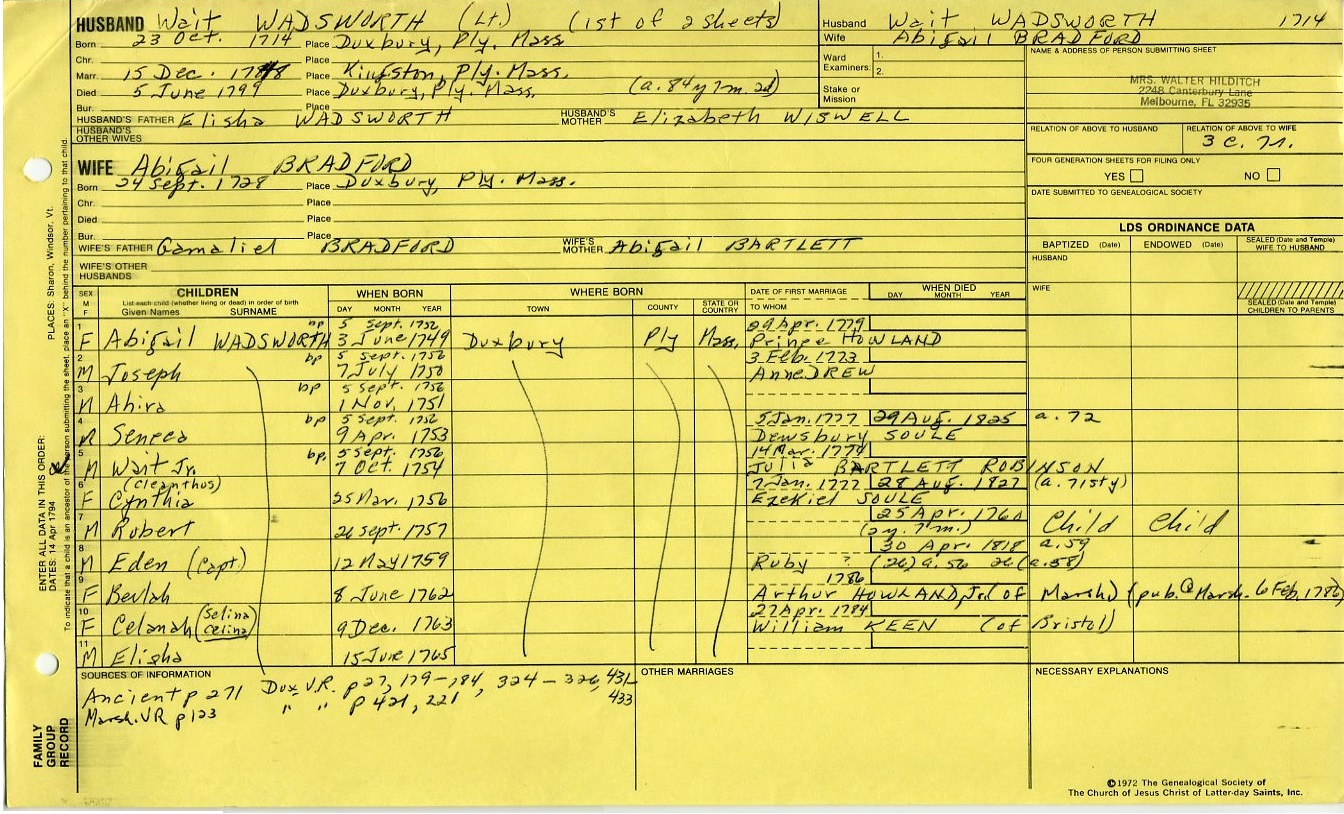 HUSBAND Wait WADSWORTH (Lt.) (1st of 2 sheets)
Born 23 Oct. 1714 Place Duxbury, Ply. Mass.
Chr. Place
Marr. 15 Dec. 1748 Place Kingston, Ply. Mass.
Died 5 June 1799 Place Duxbury, Ply. Mass. (a. 84y 7m. 2d)
Bur. Place
HUSBAND'S FATHER Elisha WADSWORTH HUSBAND'S MOTHER Elizabeth WISWELL
HUSBAND'S OTHER WIVES
WIFE Abigail BRADFORD
Born 24 Sept. 1728 Place Duxbury, Ply. Mass.
Chr. Place
Died Place
Bur. Place
WIFE'S FATHER Gamaliel BRADFORD WIFE'S MOTHER Abigail BARTLETT
WIFE'S OTHER HUSBANDS
Husband Wait WADSWORTH 1714
Wife Abigail BRADFORD
Ward Examiners: 1.
2.
Stake or Mission
NAME & ADDRESS OF PERSON SUBMITTING SHEET
MRS. WALTER HILDITCH
2248 Canterbury Lane
Melbourne, FL 32935
RELATION OF ABOVE TO HUSBAND RELATION OF ABOVE TO WIFE
3 c. 7r.
FOUR GENERATION SHEETS FOR FILING ONLY
YES NO
DATE SUBMITTED TO GENEALOGICAL SOCIETY
LDS ORDINANCE DATA
BAPTIZED (Date) ENDOWED (Date) SEALED (Date and Temple) WIFE TO HUSBAND
HUSBAND
WIFE
SEALED (Date and Temple) CHILDREN TO PARENTS
SEX M F CHILDREN List each child (whether living or dead) in order of birth Given Names SURNAME
WHEN BORN DAY MONTH YEAR
WHERE BORN TOWN COUNTY STATE OR COUNTRY
DATE OF FIRST MARRIAGE TO WHOM
WHEN DIED DAY MONTH YEAR
1 bp 5 Sept. 1756 29 Apr. 1779
F Abigail WADSWORTH 3 June 1749 Duxbury Ply Mass. Prince HOWLAND
2 bp 5 Sept. 1756 3 Feb. 1773
M Joseph 7 July 1750 Anne DREW
3 bp 5 Sept. 1756
M Ahira 1 Nov. 1751
4 bp 5 Sept. 1756 5 Jan. 1777 29 Aug. 1825 a. 72
M Seneca 9 Apr. 1753 Dewsbury SOULE
5 bp. 5 Sept. 1756 14 Mar. 1774
M Wait Jr. 7 Oct. 1754 Julia BARTLETT ROBINSON
6 (Cleanthus) 2 Jan. 1777 28 Aug. 1827 (a. 71sty)
F Cynthia 25 Mar. 1756 Ezekiel SOULE
7 25 Apr. 1760
M Robert 26 Sept. 1757 (2y. 7m.) Child Child
8 30 Apr. 1818 a. 59
M Eden (Capt.) 12 May 1759 Ruby ? (26) a. 56 26 (a. 58)
9 1786
F Beulah 8 June 1762 Arthur HOWLAND, Jr. (of Marshd) (pub. @ Marsh. 6 Feb. 1786)
10 (Selina 27 Apr. 1784
F Celanah Celina) 9 Dec. 1763 William KEEN (of Bristol)
11
M Elisha 15 June 1765
SOURCES OF INFORMATION
Ancient p 271 Dux V.R. p 27, 179-184, 324-326, 431-433
Marsh. VR p 123 " " p 421, 221
OTHER MARRIAGES
NECESSARY EXPLANATIONS
©1972 The Genealogical Society of
The Church of Jesus Christ of Latter-day Saints, Inc.
PLACES: Sharon, Windsor, Vt.
ENTER ALL DATA IN THIS ORDER:
DATES: 14 Apr 1794
To indicate that a child is an ancestor of the person submitting the sheet, place an "X" behind the number pertaining to that child.
FAMILY GROUP RECORD